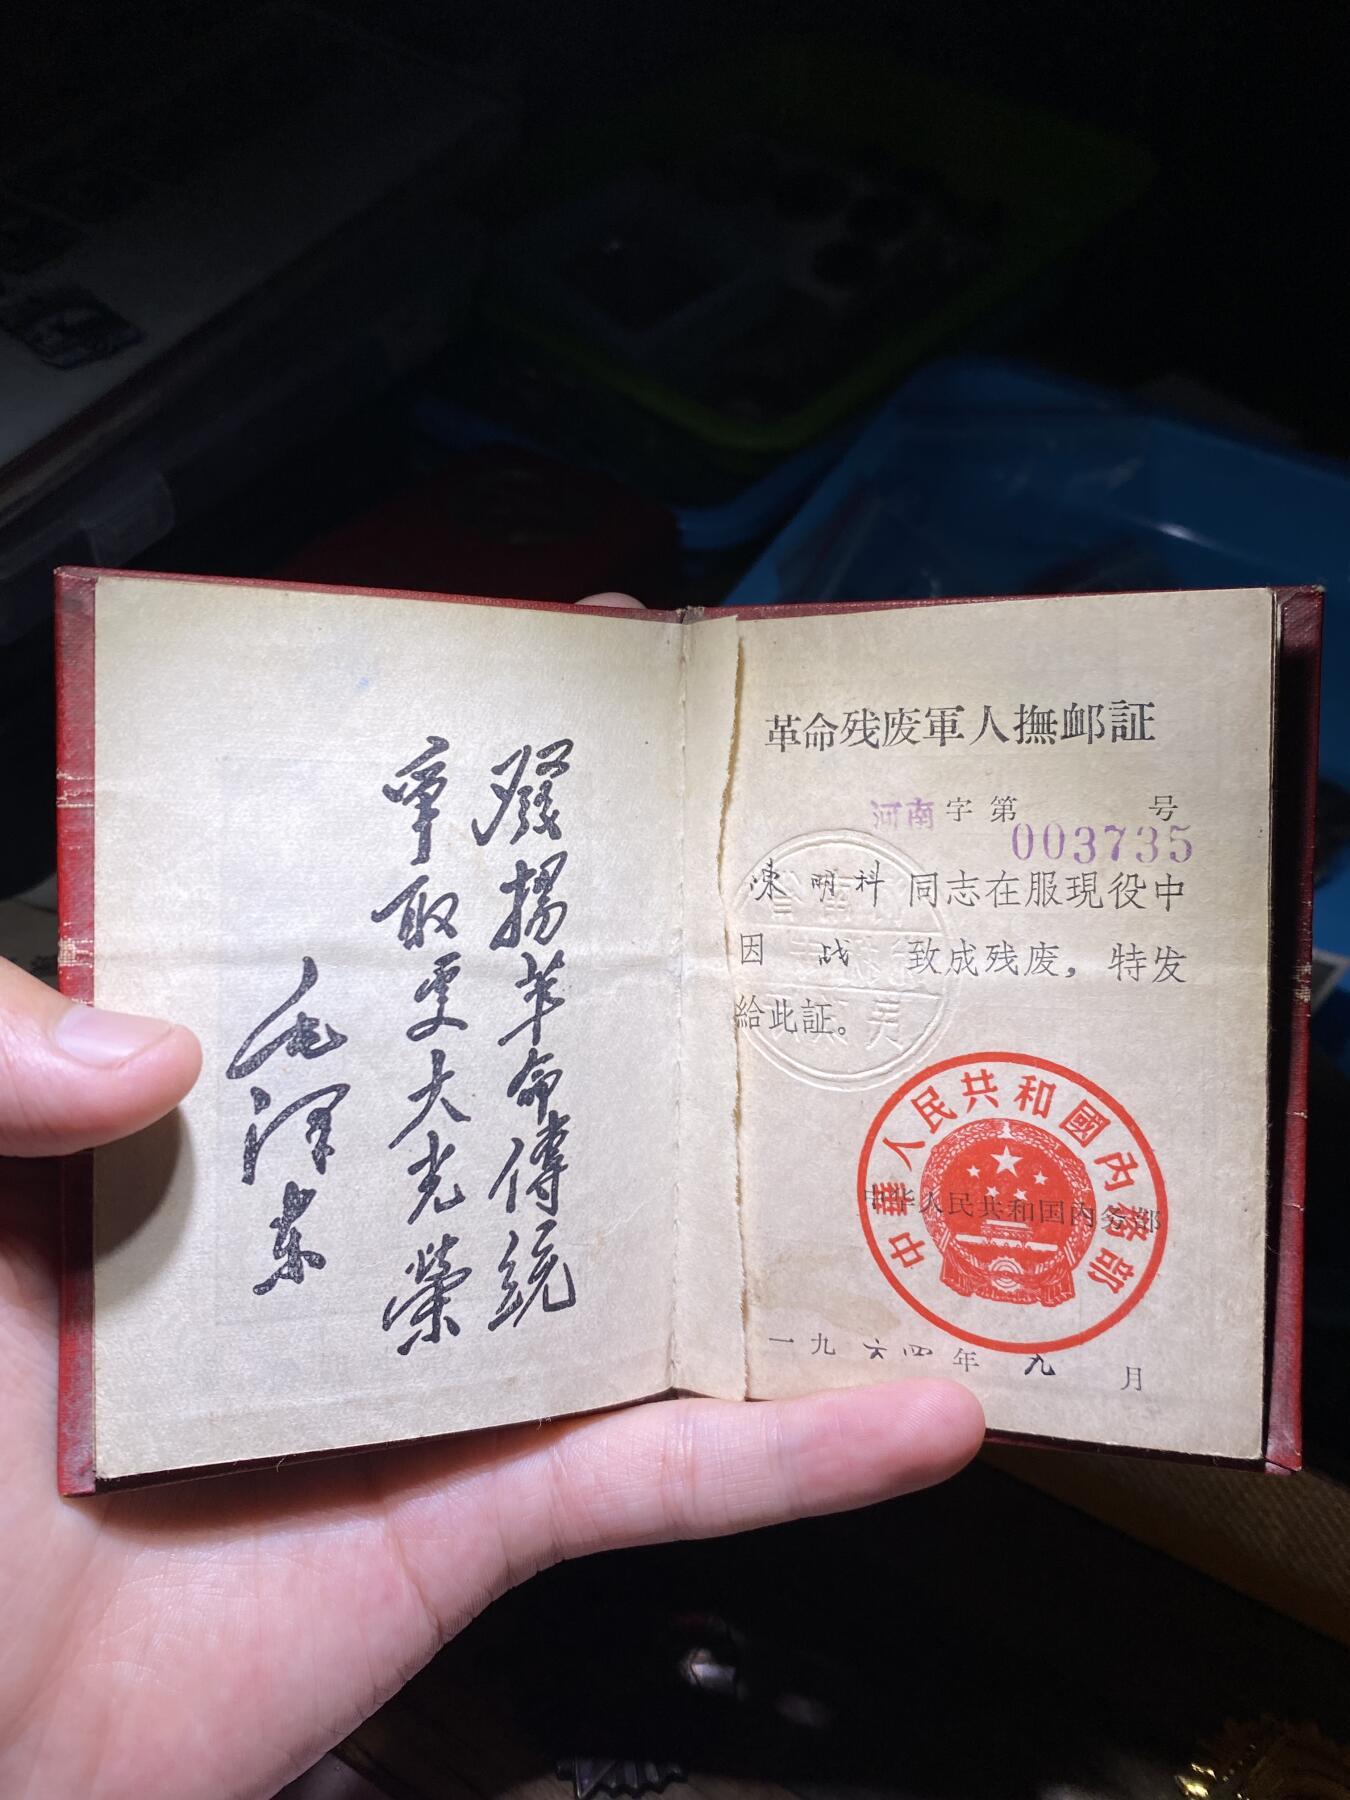 發揚革命傳統
爭取更大光榮
毛澤东
革命残废軍人撫卹証
河南字第003735号
陳明科同志在服現役中
因战致成残废，特发
給此証。
中華人民共和國內務部
中华人民共和国內务部
一九六四年九月